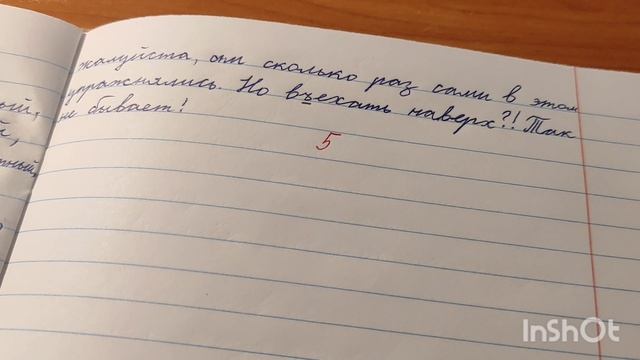 жалуйста, ом сколько раз сами в этом
упражнялись. Но въехать наверх?! Так
не бывает!
5
ый,
й,
ный,
InShOt